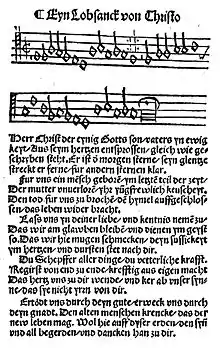 ⸿ Eyn Lobsanck von Christo
Herr Christ der eynig Gotts son/vaters yn ewig
keyt/Aus seym hertzen entsprossen/gleich wie ge-
schryben steht. Er ist der morgen sterne/seyn glentze
streckt er ferne/fur andern sternen klar.
Fur uns ein mēsch geborē/ym letztē teil der zeyt/
Der mutter unverlorē/yhr yūgfrewlich keuscheyt.
Den tod fur uns zu brochē/dē hymel auffgeschlos-
sen/das leben wider bracht.
Lass uns yn deiner liebe/und kentnis nemē zu/
Das wir am glawben bleibē/und dienen ym geyst
so. Das wir hie mugen schmecken/deyn sussickeyt
ym hertzen/und dursten stet nach dir.
Du Schepffer aller dinge/du vetterliche krafft.
Regirst von end zu ende/krefftig aus eigen macht
Das hertz uns zu dir wende/und ker ab unser syn-
ne/das sye nicht yrrn von dir.
Ertödt uns durch deyn gute/erweck uns durch
deyn gnad. Den alten menschen krencke/das der
new leben mag. Wol hie auff dyser erden/den syn
und all begerden/und dancken han zu dir.